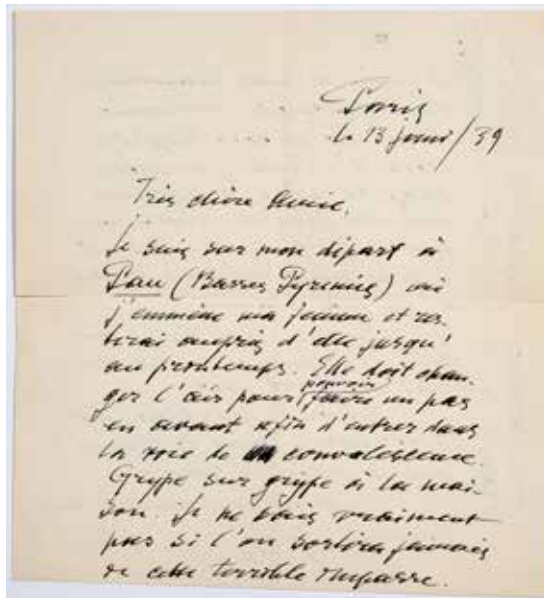 Paris
le 13 janv/39
Très chère Amie,
Je suis sur mon départ à
Pau (Basses Pyrénées) où
j'emmène ma femme et res-
terai auprès d'elle jusqu'
au printemps. Elle doit chan-
ger l'air pour pouvoir faire un pas
en avant afin d'entrer dans
la voie de convalescence.
Grippe sur grippe à la mai-
son. Je ne sais vraiment
pas si l'on sortira jamais
de cette terrible impasse.